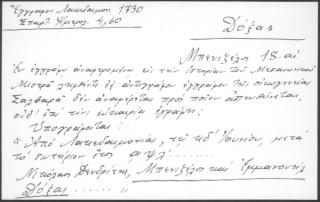 Ἔγγραφον Λακεδαιμον. 1730
Σπαρτ. Ἡμερολ. 4,60
Δόξας
Μπενιζέλη 18. αἰ
Ἐν ἐγγράφῳ ἀναφερομένῳ εἰς τὴν ἱστορίαν τοῦ Μεσαιωνικοῦ
Μυστρᾶ ἐξ ἀντιγράφου ἐγγράφου τῆς οἰκογενείας
δὲν ἀναφέρεται πρὸς ποῖον ἀπευθύνεται,
οὐδ' ἐπὶ τίνι εὐκαιρίᾳ ἐγράφη:
Ὑπογράφεται:
« Ἀπὸ Λακεδαιμονίας, τῇ κδ' Ἰουνίου, μετὰ
τὸ σωτήριον ἔτος αψλ'.......
Νικόλαος Δενδρίτης, Μπενιζέλος καὶ Ἐμμανουὴλ
Δόξας.......